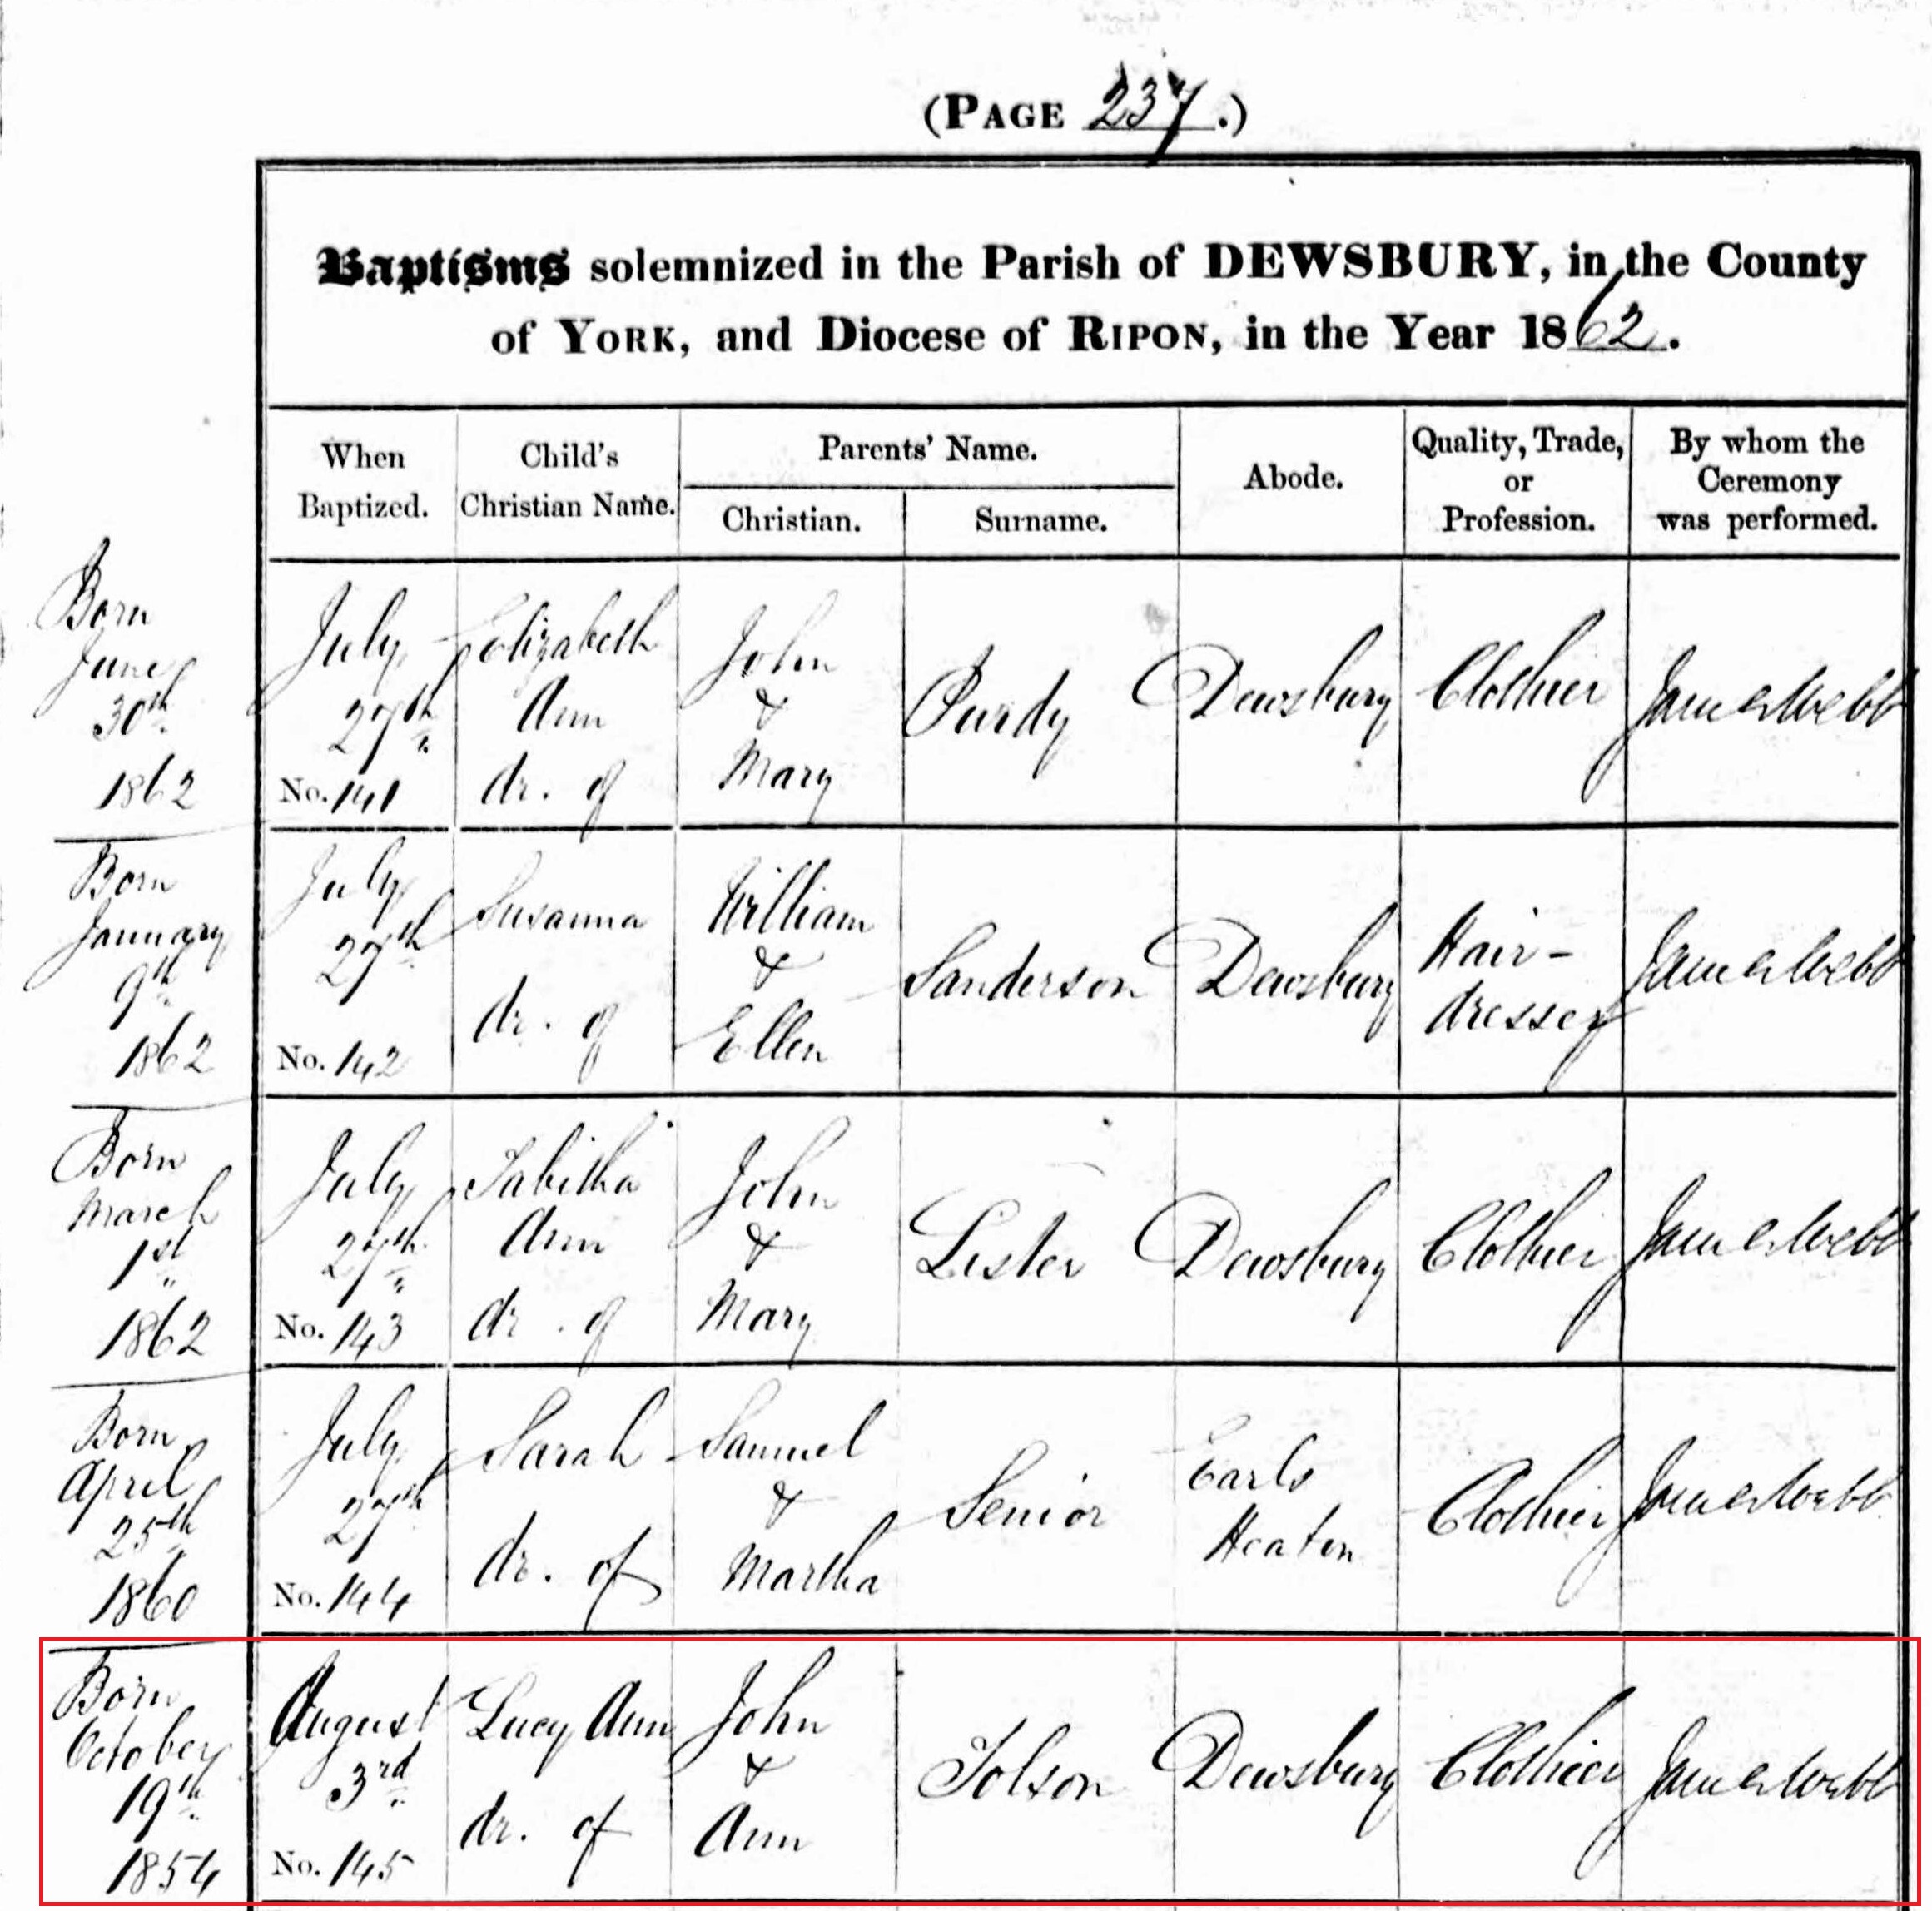 (PAGE 237.)
Baptisms solemnized in the Parish of DEWSBURY, in the County
of YORK, and Diocese of RIPON, in the Year 1862.
When Baptized.
Child's Christian Name.
Parents' Name.
Christian.
Surname.
Abode.
Quality, Trade, or Profession.
By whom the Ceremony was performed.
Born
June
30th
1862
July
27th
No. 141
Elizabeth
Ann
dr. of
John
&
Mary
Purdy
Dewsbury
Clothier
James Webb
Born
January
9th
1862
July
27th
No. 142
Susanna
dr. of
William
&
Ellen
Sanderson
Dewsbury
Hair-
dresser
James Webb
Born
March
1st
1862
July
27th
No. 143
Tabitha
Ann
dr. of
John
&
Mary
Lister
Dewsbury
Clothier
James Webb
Born
April
25th
1860
July
27th
No. 144
Sarah
dr. of
Samuel
&
Martha
Senior
Earls
Heaton
Clothier
James Webb
Born
October
19th
1854
August
3rd
No. 145
Lucy Ann
dr. of
John
&
Ann
Tolson
Dewsbury
Clothier
James Webb